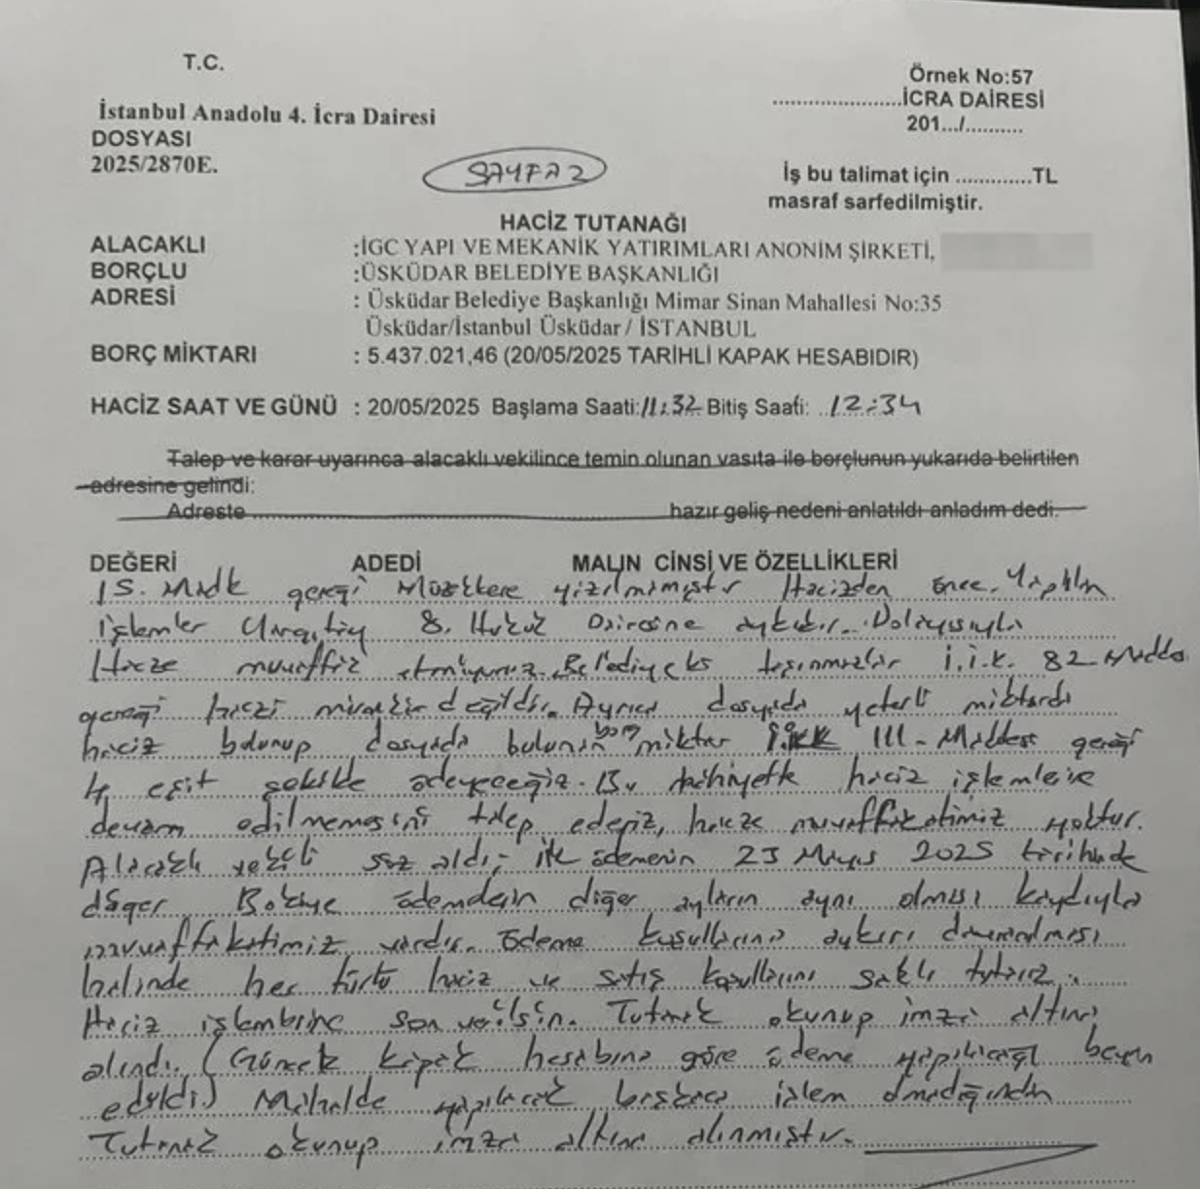 T.C.
Örnek No:57
İstanbul Anadolu 4. İcra Dairesi
......................İCRA DAİRESİ
DOSYASI
201.../..........
2025/2870E.
SAYFA 2
İş bu talimat için .............TL
masraf sarfedilmiştir.
HACİZ TUTANAĞI
ALACAKLI :İGC YAPI VE MEKANİK YATIRIMLARI ANONİM ŞİRKETİ,
BORÇLU :ÜSKÜDAR BELEDİYE BAŞKANLIĞI
ADRESİ : Üsküdar Belediye Başkanlığı Mimar Sinan Mahallesi No:35
Üsküdar/İstanbul Üsküdar / İSTANBUL
BORÇ MİKTARI : 5.437.021,46 (20/05/2025 TARİHLİ KAPAK HESABIDIR)
HACİZ SAAT VE GÜNÜ : 20/05/2025 Başlama Saati:11:32 Bitiş Saati: 12:34
Talep ve karar uyarınca alacaklı vekilince temin olunan vasıta ile borçlunun yukarıda belirtilen
adresine gelindi:
Adreste hazır geliş nedeni anlatıldı anladım dedi.
DEĞERİ ADEDİ MALIN CİNSİ VE ÖZELLİKLERİ
15. Madde gereği Müzekkere yazılmamıştır Hacizden önce Yapılan
işlemler Yargıtay 8. Hukuk Dairesine aykırıdır. Dolayısıyla
Hacze muvaffakat etmiyoruz. taşınmazlar İ.İ.K. 82. Madde
gereği haczi mümkün değildir. Ayrıca dosyada yeterli miktarda
haciz bulunup dosyada bulunan borç miktar İİK 111. Maddesi gereği
4 eşit şekilde ödeyeceğiz. Bu haciz işlemlerine
devam edilmemesini talep ederiz, hacze muvaffakatimiz yoktur.
Alacaklı vekili söz aldı; ilk ödemenin 23 Mayıs 2025 tarihinde
diğer Bakiye ödemelerin diğer ayların aynı olması kaydıyla
muvaffakatimiz vardır. Ödeme koşullarına aykırı davranılması
halinde her türlü haciz ve satış koşullarını saklı tutarız.
Haciz işlemlerine son verilsin. Tutanak okunup imza altına
alındı. (Güncel kapak hesabına göre ödeme yapılacağı beyan
edildi) Mahalde yapılacak başkaca işlem olmadığından
Tutanak okunup imza altına alınmıştır.